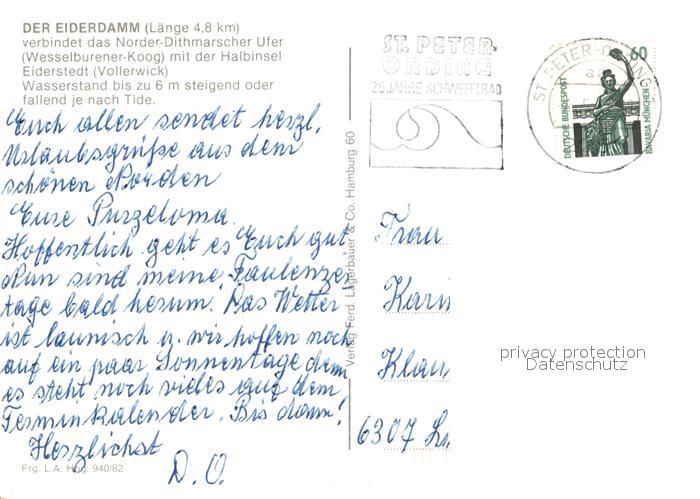 DER EIDERDAMM (Länge 4,8 km)
verbindet das Norder-Dithmarscher Ufer
(Wesselburener-Koog) mit der Halbinsel
Eiderstedt (Vollerwick)
Wasserstand bis zu 6 m steigend oder
fallend je nach Tide.
Euch allen sendet herzl.
Urlaubsgrüße aus dem
schönen Norden
Eure Purzeloma.
Hoffentlich geht es Euch gut.
Nun sind meine Faulenzer
tage bald herum. Das Wetter
ist launisch u. wir hoffen noch
auf ein paar Sonnentage denn
es steht noch vieles auf dem
Terminkalender. Bis dann!
Herzlichst
D. O.
Frg. L.A. Hbg. 940/82
Verlag Ferd. Lagerbauer & Co. Hamburg 60
ST. PETER-
ORDING
25 JAHRE SCHWEFELBAD
ST. PETER-ORDING
60
DEUTSCHE BUNDESPOST
BAVARIA MÜNCHEN
Frau
Karin
Klau
6307 Li
privacy protection
Datenschutz